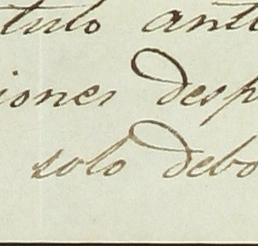 tulo ant
iones desp
solo debo